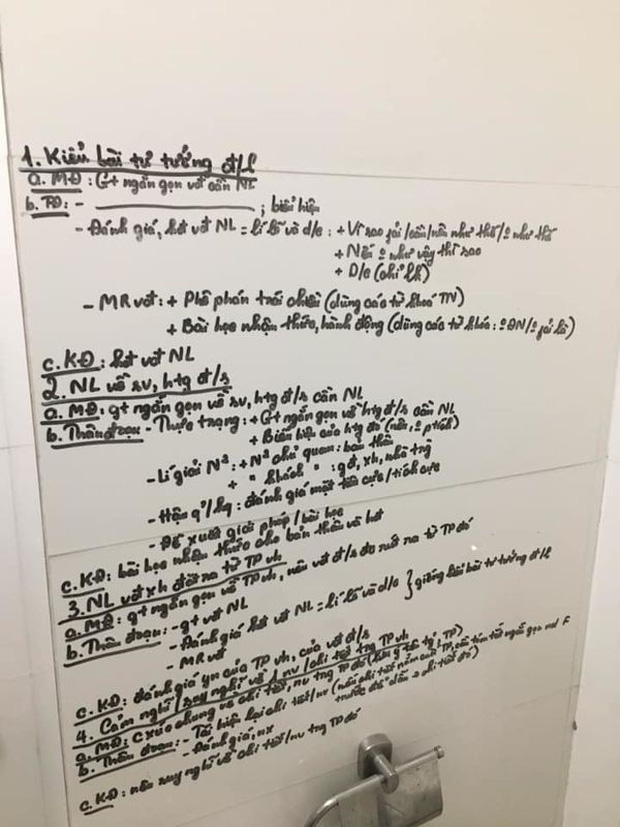 1. Kiểu bài tư tưởng đ/l
a. MĐ: Gt ngắn gọn vđ cần NL
b. TĐ: - ; biểu hiện
- Đánh giá, bàn vđ NL = lí lẽ và d/c: + Vì sao phải / cần / nên như thế / ko như thế
+ Nếu ko như vậy thì sao
+ D/c
- MR vđ: + Phê phán trái chiều (dùng các từ khoá TN)
+ Bài học nhận thức, hành động (dùng các từ khóa:
c. KĐ: vđ NL
2. NL về sv, htg đ/s
a. MĐ: gt ngắn gọn về sv, htg đ/s cần NL
b. Thân đoạn - Thực trạng: + Gt ngắn gọn về htg đ/s cần NL
+ Biểu hiện của htg đó
- Lí giải N²: + N² chủ quan: bản thân
+ " khách " : gđ, xh, nhà trg
- Hậu q'/kq: đánh giá mặt tiêu cực/tích cực
- Đề xuất giải pháp/bài học
c. KĐ: bài học nhận thức cho bản thân và
3. NL vđ xh đặt ra từ TP vh
a. MĐ: gt ngắn gọn về TP vh, nêu vđ đ/s đc rút ra từ TP đó
b. Thân đoạn: - gt vđ NL
- Đánh giá vđ NL = lí lẽ và d/c } giống kiểu bài tư tưởng đ/l
- MR vđ
c. KĐ: đánh giá yn của TP vh, của vđ đ/s
4. Cảm nghĩ / suy nghĩ về 1 nv / chi tiết trg TP vh
a. MĐ: cxúc chung về chi tiết, nv trg TP đó
b. Thân đoạn: - Tái hiện lại chi tiết/nv
- Đánh giá, nx
c. KĐ: nêu suy nghĩ về chi tiết/nv trg TP đó